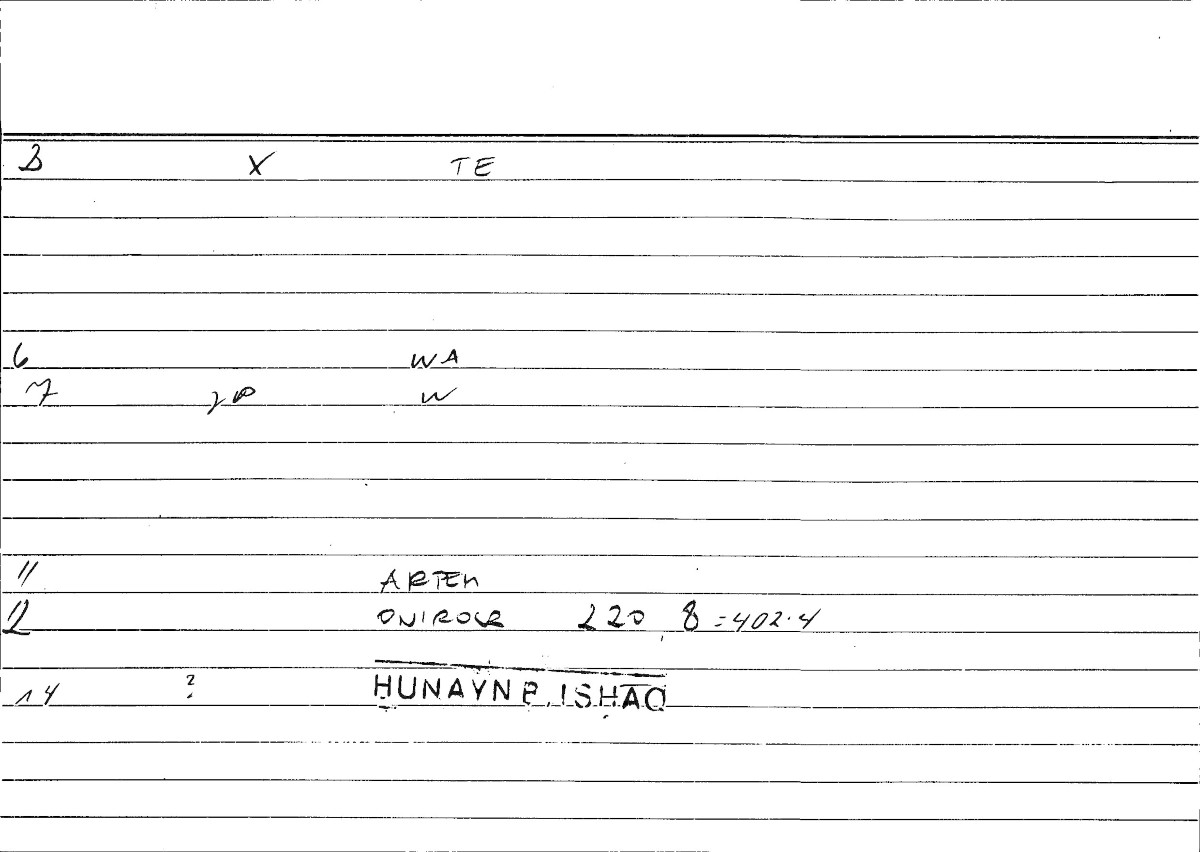 B X TE
6 WA
7 W
11 ARTEM
12 ONIROCR 220, 8 = 402.4
14 ? HUNAYN B. ISHAQ